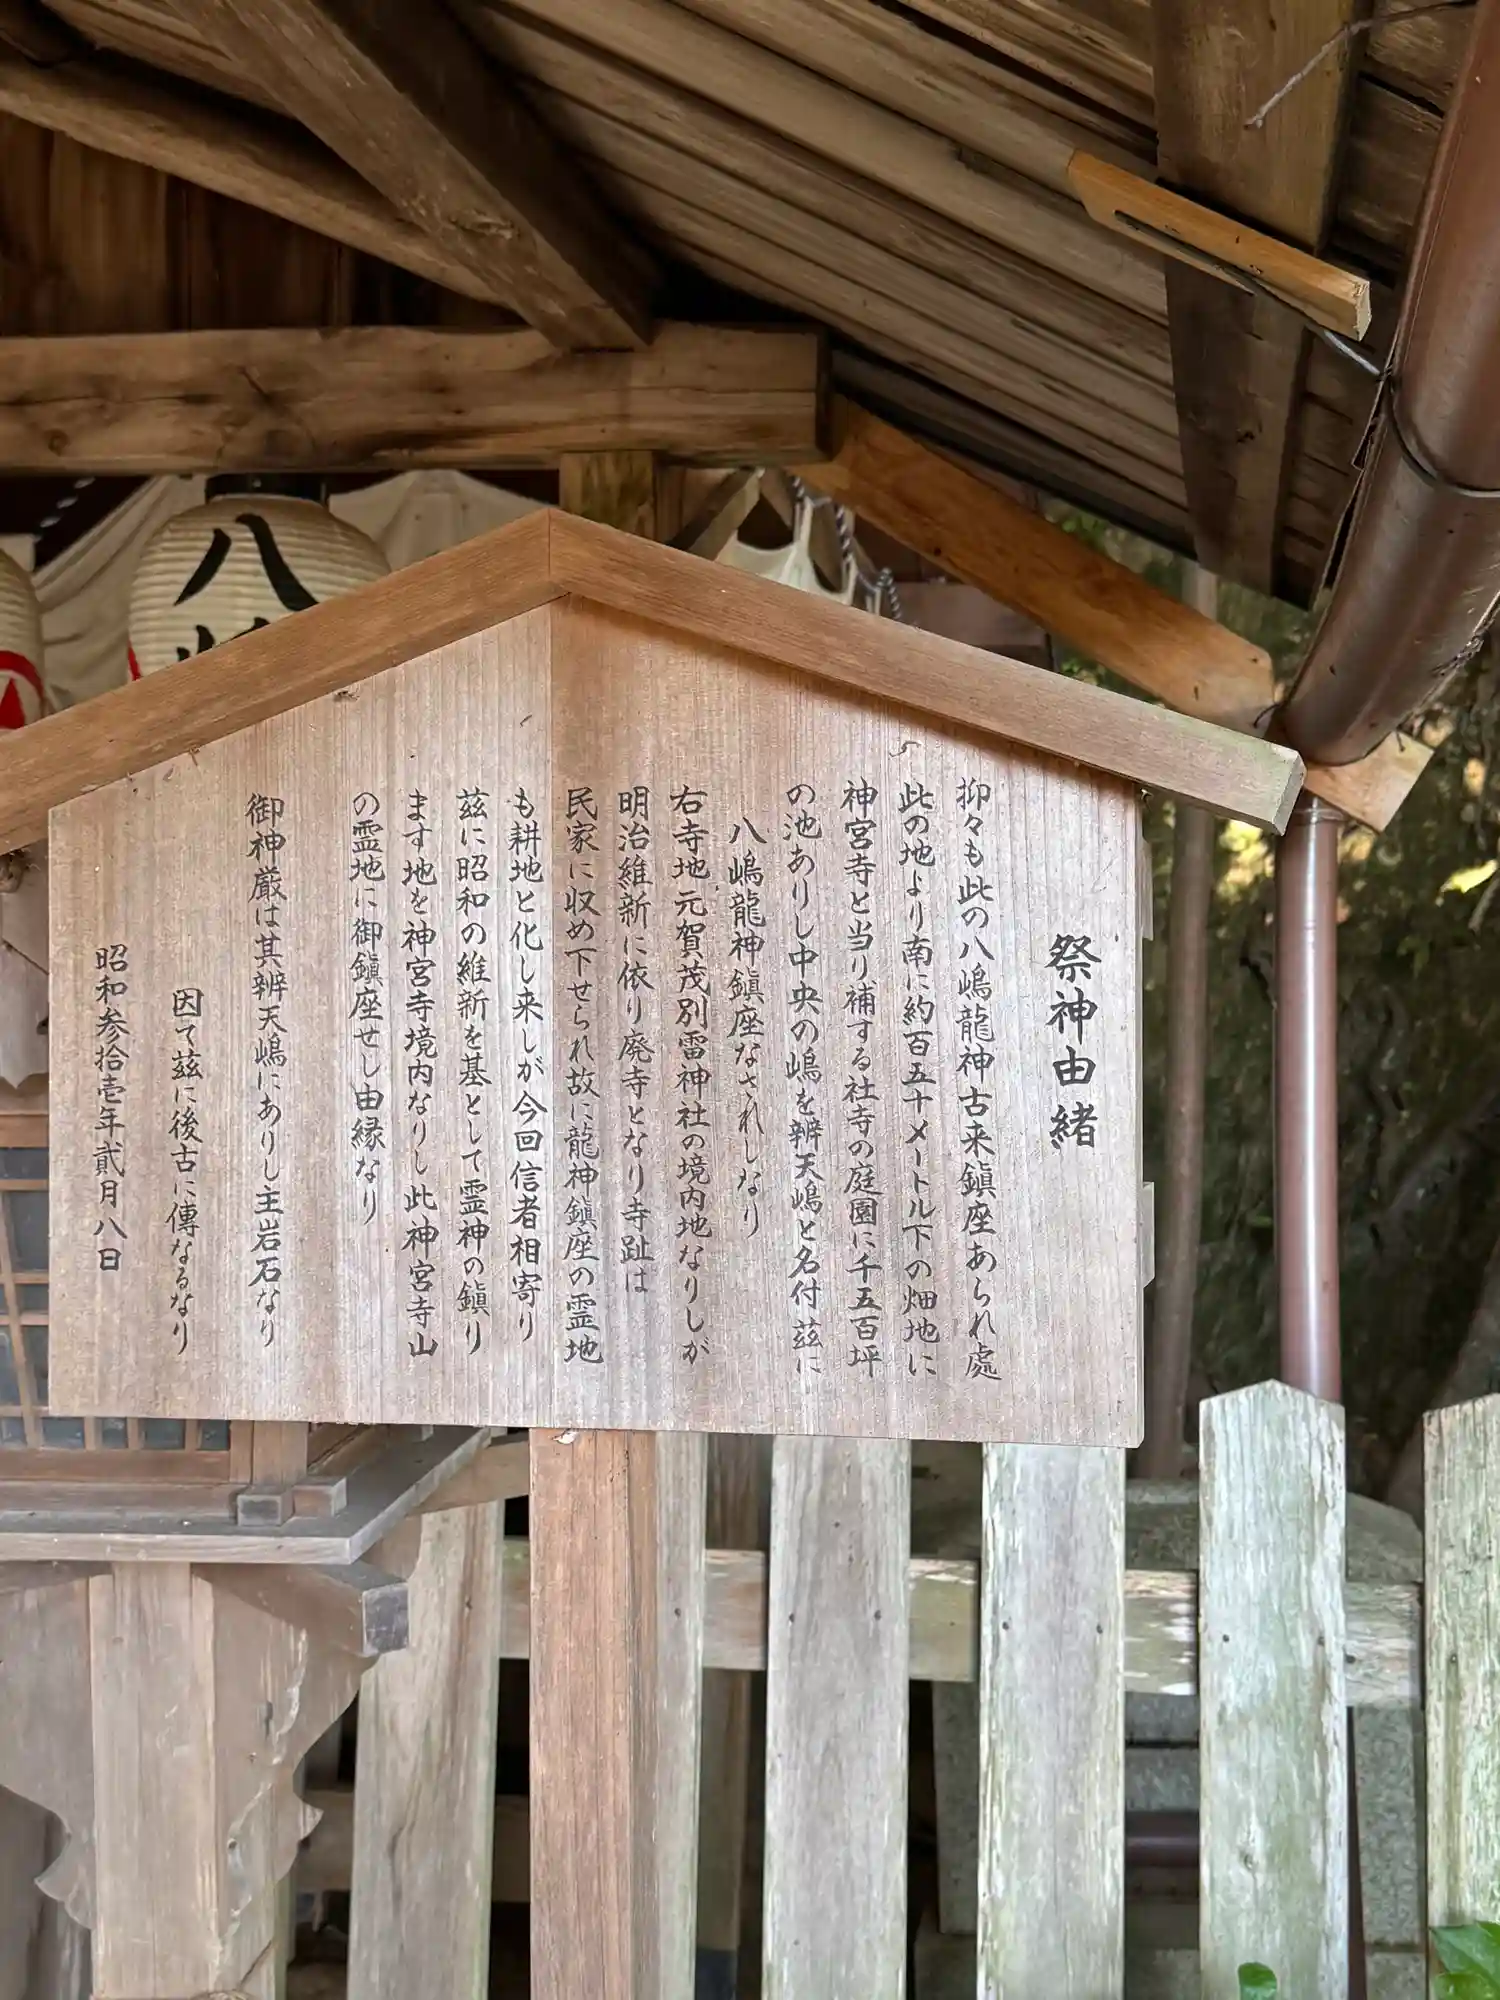 祭神由緒
抑々も此の八嶋龍神古来鎭座あられ處
此の地より南に約百五十メートル下の畑地に
神宮寺と当り補する社寺の庭園に千五百坪
の池ありし中央の嶋を辨天嶋と名付茲に
八嶋龍神鎭座なされしなり
右寺地元賀茂別雷神社の境内地なりしが
明治維新に依り廃寺となり寺趾は
民家に収め下せられ故に龍神鎭座の霊地
も耕地と化し来しが今回信者相寄り
茲に昭和の維新を基として霊神の鎭り
ます地を神宮寺境内なりし此神宮寺山
の霊地に御鎭座せし由縁なり
御神厳は其辨天嶋にありし主岩石なり
因て茲に後古に傳なるなり
昭和参拾壱年貳月八日
八